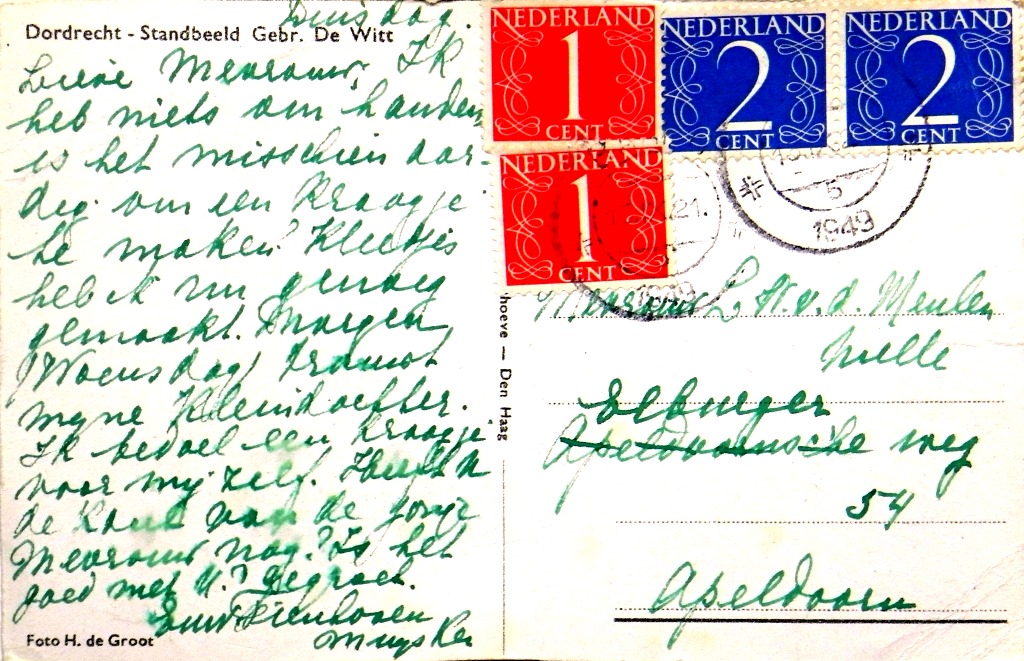 Dinsdag.
Dordrecht - Standbeeld Gebr. De Witt
Lieve Mevrouw, Ik
heb niets om handen
is het misschien aar-
dig om een kraagje
te maken? Kleetjes
heb ik nu genoeg
gemaakt. Morgen
(Woensdag) komt
myne Kleindochter.
Ik bedoel een kraagje
voor my zelf. Heeft U
de van de jonge
Mevrouw nog? Is het
goed met U.? Gegroet.
Muysken
Foto H. de Groot
hoeve — Den Haag
NEDERLAND
1
CENT
NEDERLAND
2
CENT
NEDERLAND
2
CENT
NEDERLAND
1
CENT
5
1949
21.
1949
Mevrouw L. W. v. d. Meulen
Elburger
Apeldoornsche weg
54
Apeldoorn